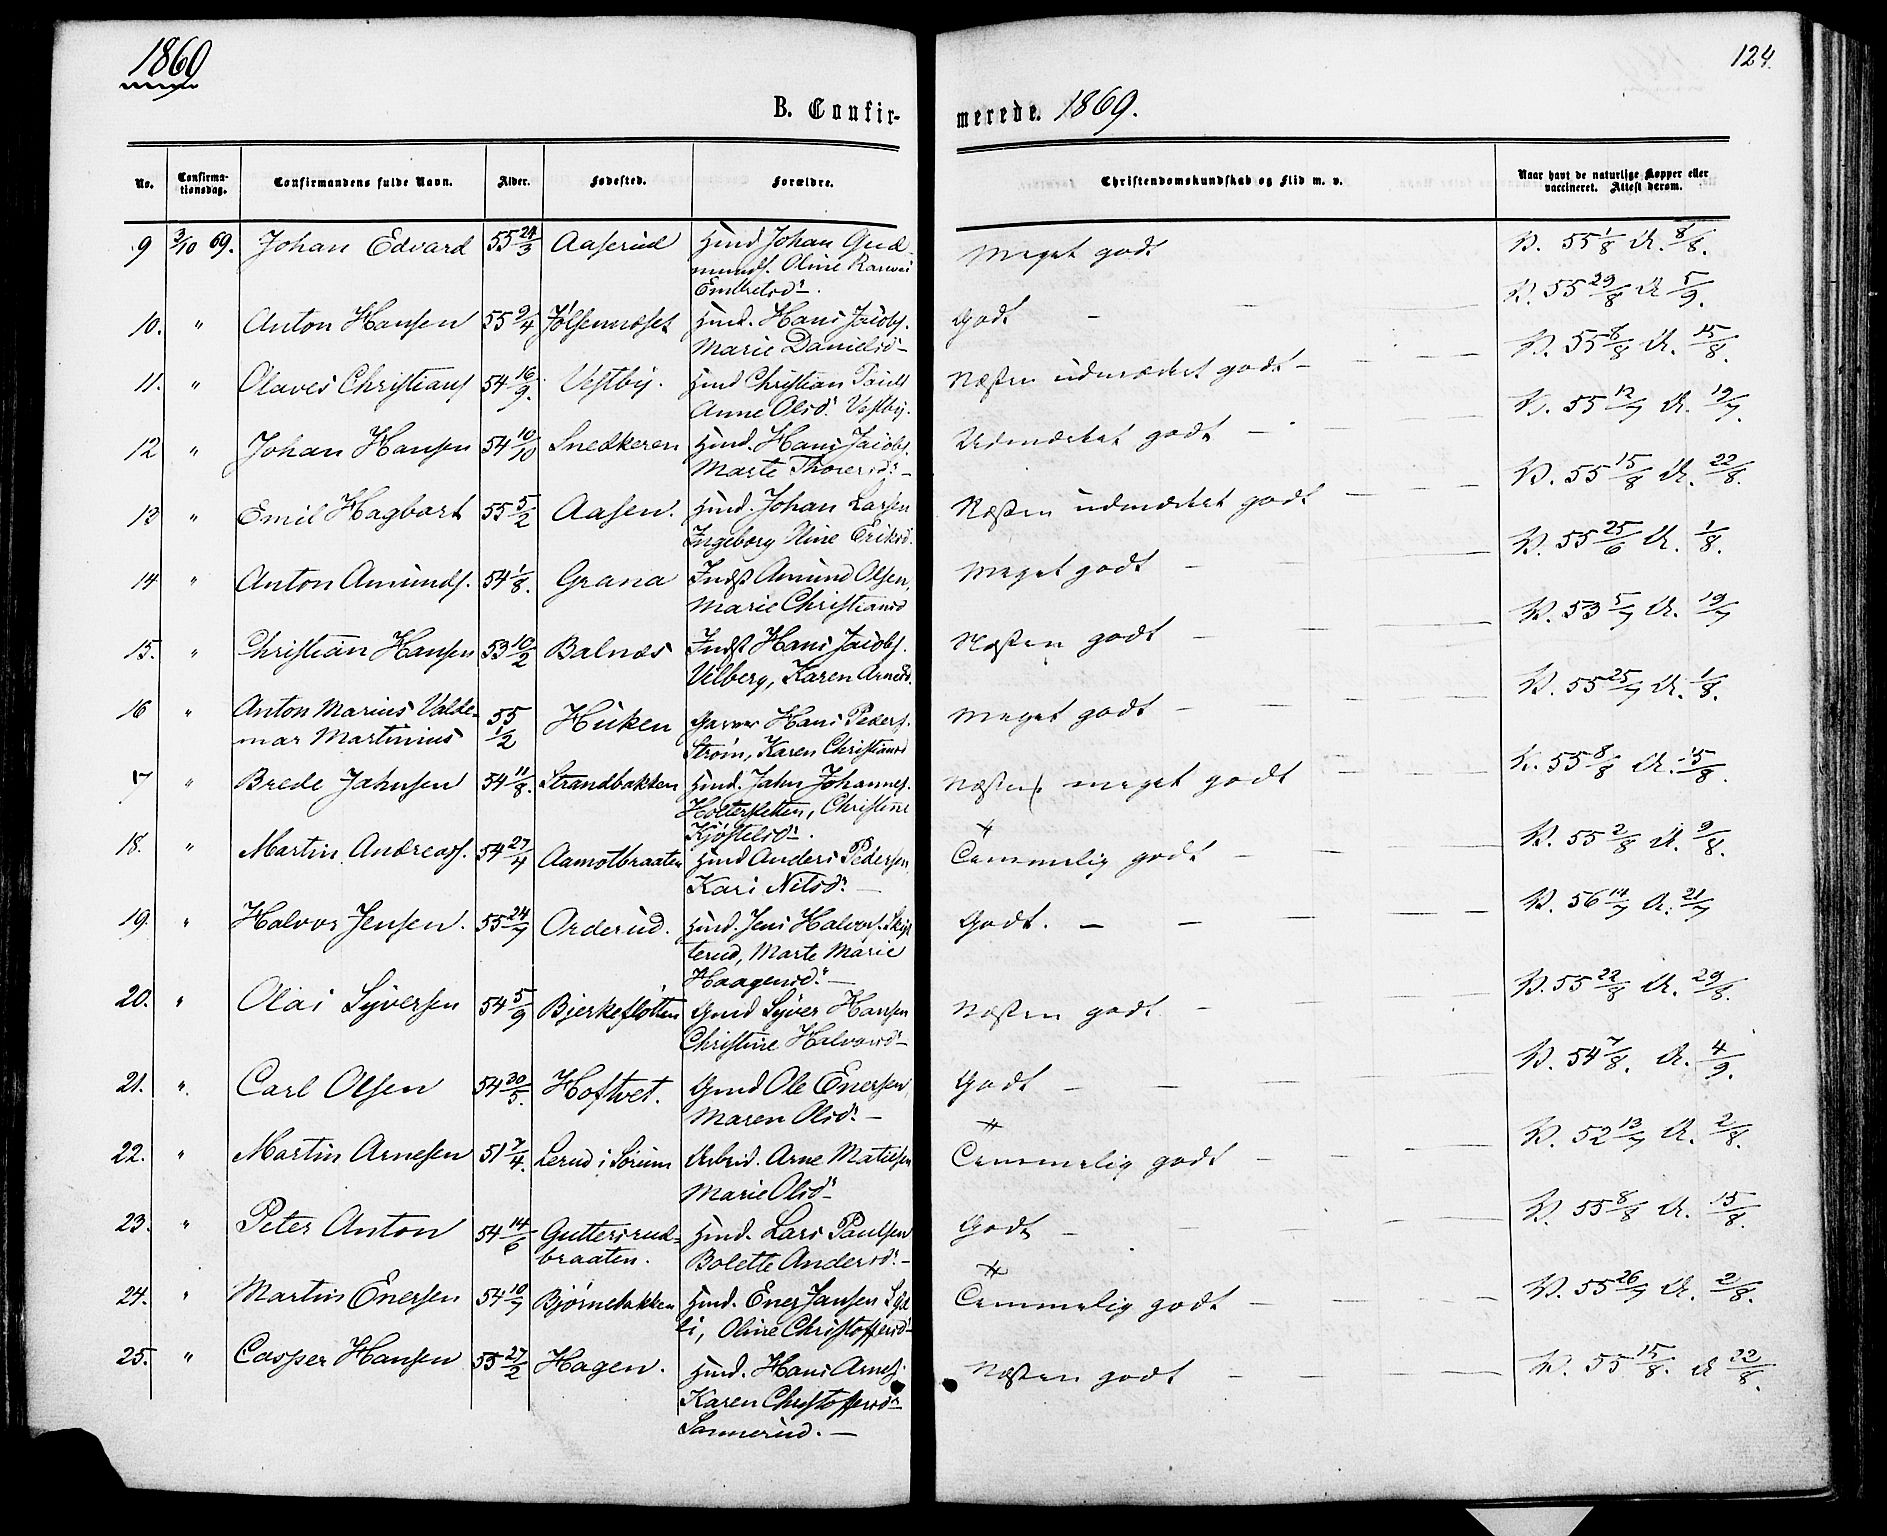 1869
124.
B. Confir-
merede. 1869.
No.
Confirma-
tionsdag.
Confirmandens fulde Navn.
Alder.
Fødested.
Forældre.
Christendomskundskab og Flid m. v.
Naar havt de naturlige Kopper eller
vaccineret. Attest derom.
9 3/10 69. Johan Edvard 55 24/3 Aaserud Huusm. Johan Gud-
munds. Oline
Embretsd.
Meget godt
V. 55 1/8 A. 8/8.
10. " Anton Hansen 55 9/4 Jølsennæset Huusm. Hans Jacobs.
Marie Danielsd –
Godt –
V. 55 29/8 A 5/9.
11. " Olaves Christians 54 16/9. Vestby. Huusm Christian Pauls
Anne Olsd. Vestby.
Næsten udmærket godt –
V. 55 8/8 A. 15/8.
12 " Johan Hansen 54 10/10 Snedkeren Huusm. Hans Jacobs.
Marte Thoresd. –
Udmærket godt –
V. 55 12/7 A. 19/7.
13 " Emil Hagbart 55 5/2 Aasen. Huusm. Johan Larsen
Ingeborg Eriksd.
Næsten udmærket godt
V. 55 15/8 A. 22/8.
14 " Anton Amunds. 54 1/8. Grana Inds Amund Olsen,
Marie Christiansd
Meget godt –
V. 55 25/6 A. 1/8.
15. " Christian Hansen 53 10/2 Balnæs Inds Hans Jacobs.
Vilberg, Karen Arnesd.
Næsten godt –
V. 53 5/7 A. 19/7
16 " Anton Marius Valde-
mar Martinius
55 1/2 Huken Garver Hans Peders.
Strøm, Karen Christiansd
Meget godt –
V. 55 25/7 A. 1/8.
17 " Brede Jahnsen 54 11/8. Strandbakken Huusm. Jahn Johannes.
Christine
Kjøstelsd.
Næsten meget godt
V. 55 8/8 A. 15/8.
18. " Martin Andreass. 54 27/7 Aamotbraaten Huusm Anders Pedersen,
Kari Nilsd. –
Temmelig godt –
V. 55 2/8 A. 9/8.
19. " Halvor Jensen. 55 24/7 Orderud. Huusm. Jens Halvors. Skyt
terud, Marte Marie
Haagensd. –
Godt. –
V. 56 14/7 A. 21/7
20. " Olai Syversen 54 5/9 Bjerkefløtten Gmd Syver Hansen
Christine Halvorsd –
Næsten godt –
V. 55 22/8 A. 29/8.
21. " Carl Olsen 54 30/5. Hoftvet. Gmd Ole Enersen,
Maren Olsd. –
Godt –
V. 54 7/8. A. 4/9.
22. " Martin Arnesen 51 7/4. Lerud i Sørum Arbeid. Arne Matiesen
Marie Olsd –
Temmelig godt –
V. 52 13/7 A. 2/8.
23. " Peter Anton 54 14/6 Guttersrud-
braaten.
Huusm. Lars Paulsen
Bolette Andersd. –
Godt –
V. 55 8/8 A. 15/8.
24. " Martin Enersen 54 10/7 Bjørnebakken Huusm. Ener Jansen
li, Oline Christoffersd –
Temmelig godt –
V. 55 26/7 A. 2/8.
25. " Casper Hansen 55 27/2 Hagen. Huusm. Hans Arnes.
Karen Christoffersd
Sannerud. –
Næsten godt –
V. 55 15/8. A 22/8.